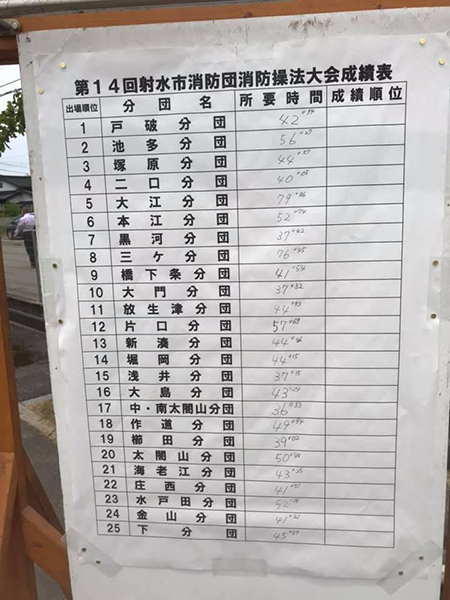 第14回射水市消防団消防操法大会成績表
出場順位 分団名 所要時間 成績順位
1 戸破分団 42
2 池多分団 56
3 塚原分団 44
4 二口分団 40
5 大江分団 79
6 本江分団 52"74
7 黒河分団 37"42
8 三ケ分団 76"45
9 橋下条分団 41"54
10 大門分団 37"32
11 放生津分団 44"93
12 片口分団 57"69
13 新湊分団 44
14 堀岡分団 44"15
15 浅井分団 37"15
16 大島分団 43"24
17 中・南太閤山分団 36"33
18 作道分団 49
19 櫛田分団 39"02
20 太閤山分団 50
21 海老江分団 43
22 庄西分団 41
23 水戸田分団
24 金山分団 41"21
25 下分団 45